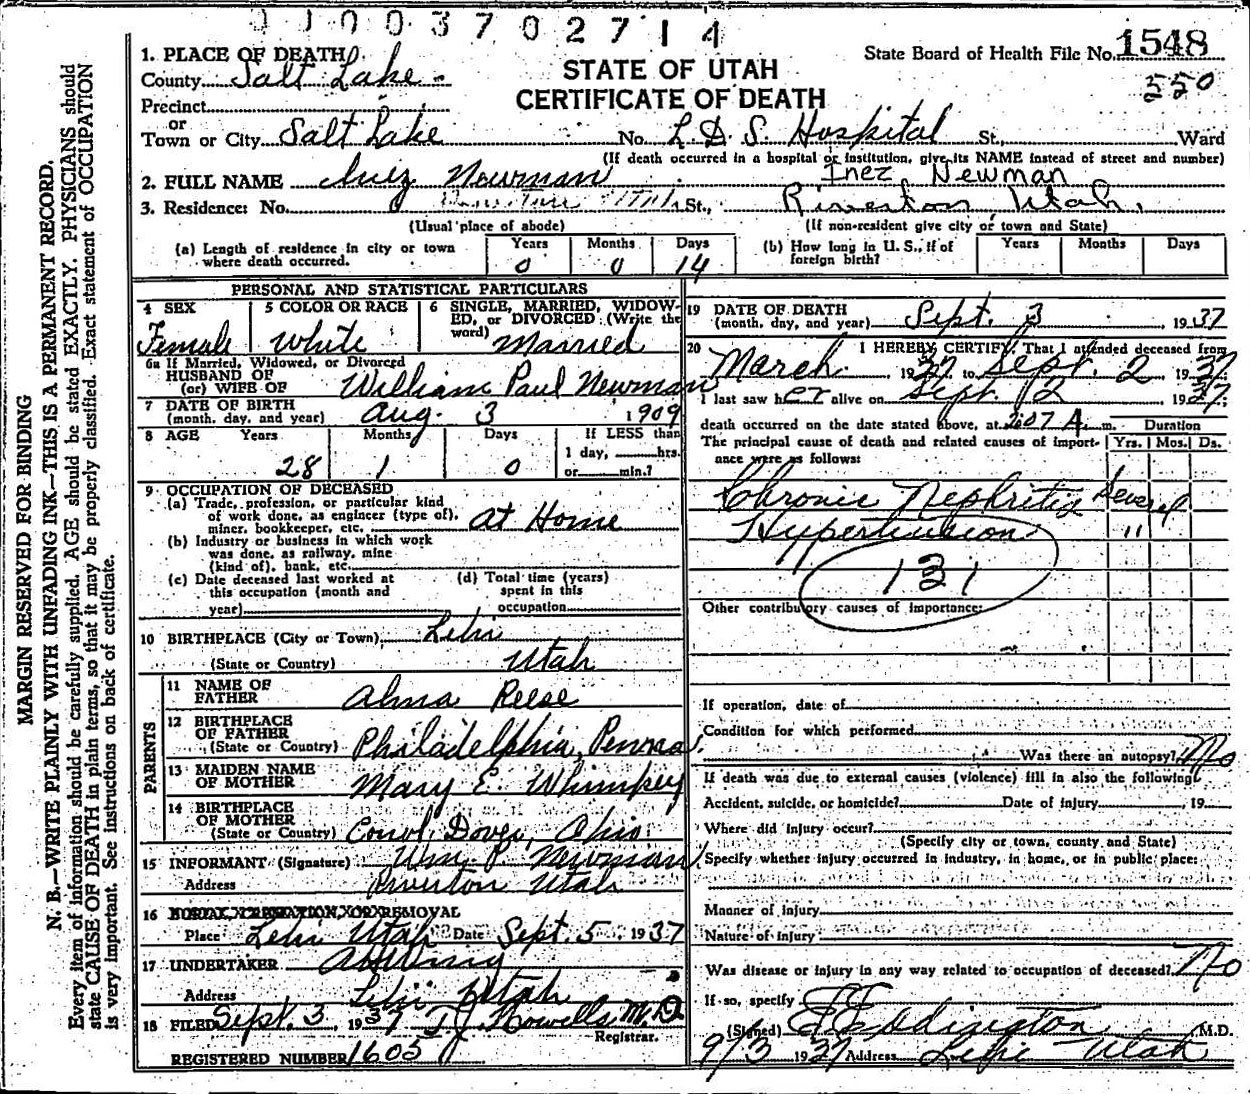 01003702714
1. PLACE OF DEATH
State Board of Health File No. 1548
County Salt Lake
STATE OF UTAH
550
Precinct
CERTIFICATE OF DEATH
or
Town or City Salt Lake No. L. D. S. Hospital St., Ward
(If death occurred in a hospital or institution, give its NAME instead of street and number)
2. FULL NAME Inez Newman Inez Newman
3. Residence: No. St., Riverton Utah.
(Usual place of abode) (If non-resident give city or town and State)
(a) Length of residence in city or town where death occurred. Years 0 Months 0 Days 14
(b) How long in U. S., if of foreign birth? Years Months Days
PERSONAL AND STATISTICAL PARTICULARS
4 SEX Female
5 COLOR OR RACE White
6 SINGLE, MARRIED, WIDOWED, or DIVORCED (Write the word) Married
6a If Married, Widowed, or Divorced
HUSBAND OF
(or) WIFE OF William Paul Newman
7 DATE OF BIRTH
(month, day, and year) Aug. 3 1909
8 AGE Years 28 Months 1 Days 0
If LESS than
1 day, hrs.
or min.?
9 OCCUPATION OF DECEASED
(a) Trade, profession, or particular kind
of work done, as engineer (type of),
miner, bookkeeper, etc. At Home
(b) Industry or business in which work
was done, as railway, mine
(kind of), bank, etc.
(c) Date deceased last worked at
this occupation (month and
year)
(d) Total time (years)
spent in this
occupation
10 BIRTHPLACE (City or Town) Lehi
(State or Country) Utah
PARENTS
11 NAME OF
FATHER Alma Reese
12 BIRTHPLACE
OF FATHER
(State or Country) Philadelphia, Penna.
13 MAIDEN NAME
OF MOTHER Mary E. Whimpey
14 BIRTHPLACE
OF MOTHER
(State or Country) Dover, Ohio
15 INFORMANT (Signature) Wm. P. Newman
Address Riverton Utah
16 BURIAL, CREMATION, OR REMOVAL
Place Lehi Utah Date Sept. 5, 1937
17 UNDERTAKER
Address Lehi Utah
18 FILED Sept. 3, 1937 Howells M.D.
Registrar.
REGISTERED NUMBER 1605
19 DATE OF DEATH
(month, day, and year) Sept. 3, 1937
20 I HEREBY CERTIFY, That I attended deceased from
March, 1937, to Sept. 2, 1937
I last saw her alive on Sept. 2, 1937;
death occurred on the date stated above, at 2:07 A. m.
Duration
The principal cause of death and related causes of importance were as follows: Yrs. Mos. Ds.
Chronic Nephritis Several
Hypertension "
131
Other contributory causes of importance:
If operation, date of
Condition for which performed
Was there an autopsy? No
If death was due to external causes (violence) fill in also the following:
Accident, suicide, or homicide? Date of injury , 19
Where did injury occur?
(Specify city or town, county and State)
Specify whether injury occurred in industry, in home, or in public place:
Manner of injury
Nature of injury
Was disease or injury in any way related to occupation of deceased? No
If so, specify
(Signed) Eddington M.D.
9/3 1937 Address Lehi Utah
MARGIN RESERVED FOR BINDING
N. B.—WRITE PLAINLY WITH UNFADING INK—THIS IS A PERMANENT RECORD.
Every item of information should be carefully supplied. AGE should be stated EXACTLY. PHYSICIANS should
state CAUSE OF DEATH in plain terms, so that it may be properly classified. Exact statement of OCCUPATION
is very important. See instructions on back of certificate.